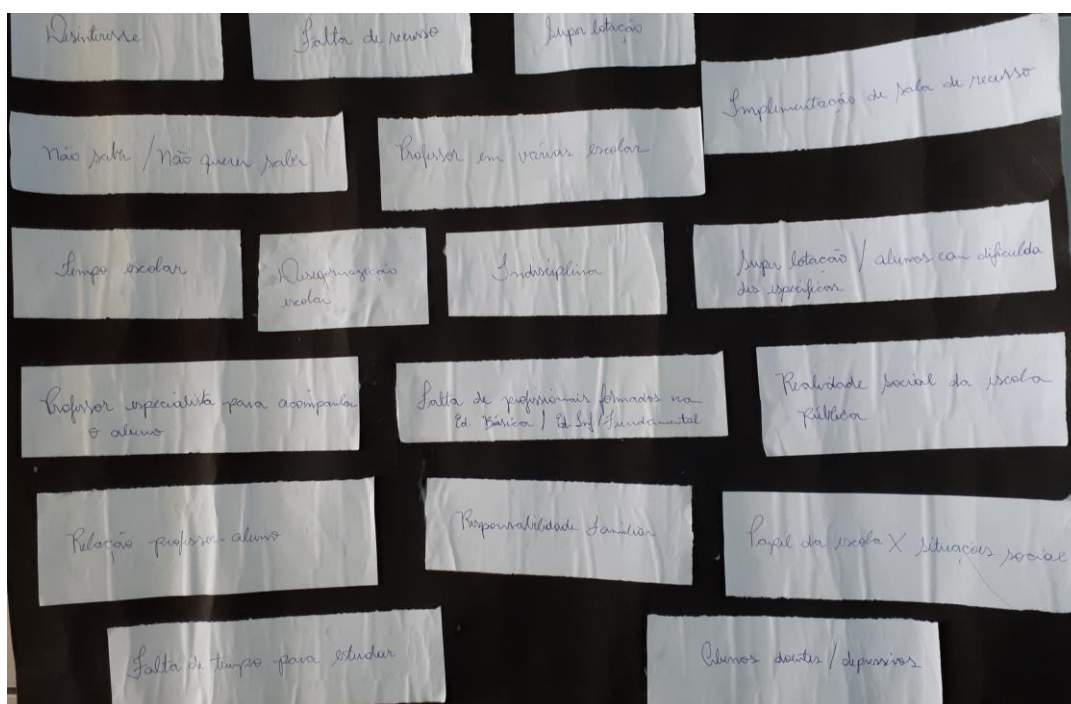 Desinteresse
Falta de recurso
Super lotação
Implementação de sala de recurso
Não saber / Não querer saber
Professor em várias escolas
Tempo escolar
Desorganização
escolar
Indisciplina
Super lotação / alunos com dificulda
des específicas
Professor especialista para acompanhar
o aluno
Falta de profissionais formados na
Ed. Básica / Ed Inf / Fundamental
Realidade social da escola
pública
Relação professor-aluno
Responsabilidade familiar
Papel da escola X situações social
Falta de tempo para estudar
Alunos doentes / depressivos